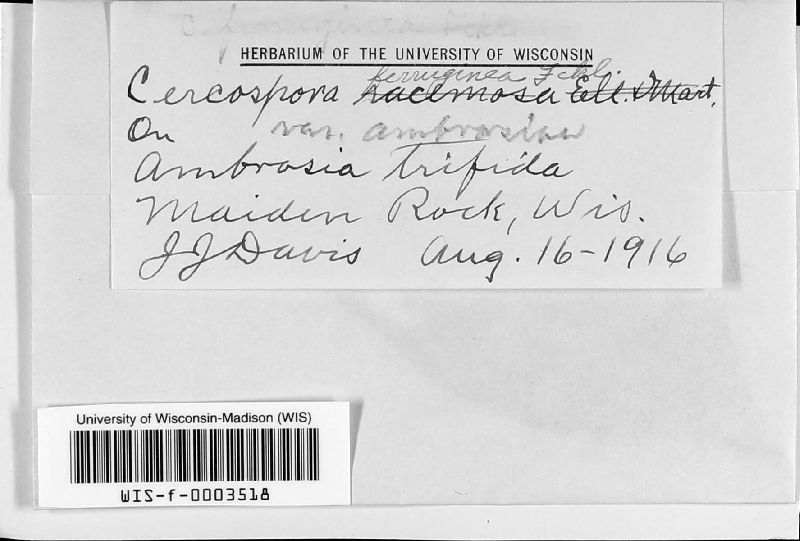 C. ferruginea Fckl
HERBARIUM OF THE UNIVERSITY OF WISCONSIN
ferruginea Fckl.
Cercospora racemosa Ell. & Mart.
On var. ambrosiae
Ambrosia trifida
Maiden Rock, Wis.
JJ Davis Aug. 16-1916
University of Wisconsin-Madison (WIS)
WIS-f-0003518